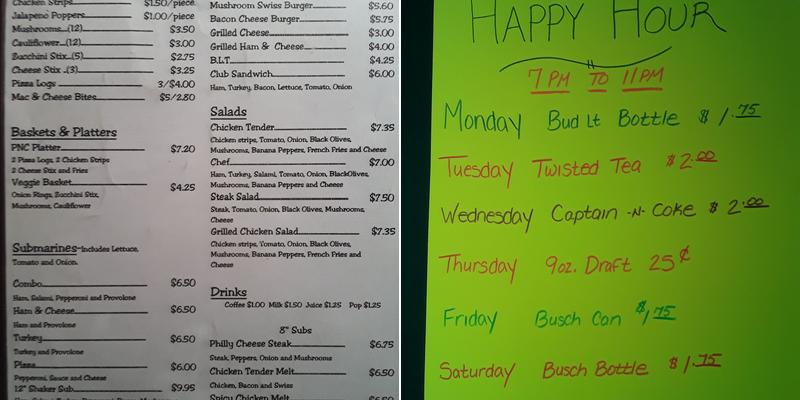 Chicken Strips $1.50/piece
Jalapeno Poppers $1.00/piece
Mushrooms..(12) $3.50
Cauliflower..(12) $3.00
Zucchini Stix..(5) $2.75
Cheese Stix .(3) $3.25
Pizza Logs 3/$4.00
Mac & Cheese Bites $5/2.80
Baskets & Platters
PNC Platter $7.20
2 Pizza Logs, 2 Chicken Strips
2 Cheese Stix and Fries
Veggie Basket $4.25
Onion Rings, Zucchini Stix,
Mushrooms, Cauliflower
Submarines-Includes Lettuce,
Tomato and Onion.
Combo $6.50
Ham, Salami, Pepperoni and Provolone
Ham & Cheese $6.50
Ham and Provolone
Turkey $6.50
Turkey and Provolone
Pizza $6.00
Pepperoni, Sauce and Cheese
12" Shaker Sub $9.95
Mushroom Swiss Burger $5.60
Bacon Cheese Burger $5.75
Grilled Cheese $3.00
Grilled Ham & Cheese $4.00
B.L.T. $4.25
Club Sandwich $6.00
Ham, Turkey, Bacon, Lettuce, Tomato, Onion
Salads
Chicken Tender $7.35
Chicken strips, Tomato, Onion, Black Olives,
Mushrooms, Banana Peppers, French Fries and Cheese
Chef $7.00
Ham, Turkey, Salami, Tomato, Onion, BlackOlives,
Mushrooms, Banana Peppers and Cheese
Steak Salad $7.50
Steak, Tomato, Onion, Black Olives, Mushrooms,
Cheese
Grilled Chicken Salad $7.35
Chicken strips, Tomato, Onion, Black Olives,
Mushrooms, Banana Peppers, French Fries and
Cheese
Drinks
Coffee $1.00 Milk $1.50 Juice $1.25 Pop $1.25
8" Subs
Philly Cheese Steak $6.75
Steak, Peppers, Onion and Mushrooms
Chicken Tender Melt $6.50
Chicken, Bacon and Swiss
Spicy Chicken Melt $6.50
HAPPY HOUR
7 PM TO 11 PM
Monday Bud Lt Bottle $1.75
Tuesday Twisted Tea $2.00
Wednesday Captain -N- Coke $2.00
Thursday 9oz. Draft 25¢
Friday Busch Can $1.75
Saturday Busch Bottle $1.75